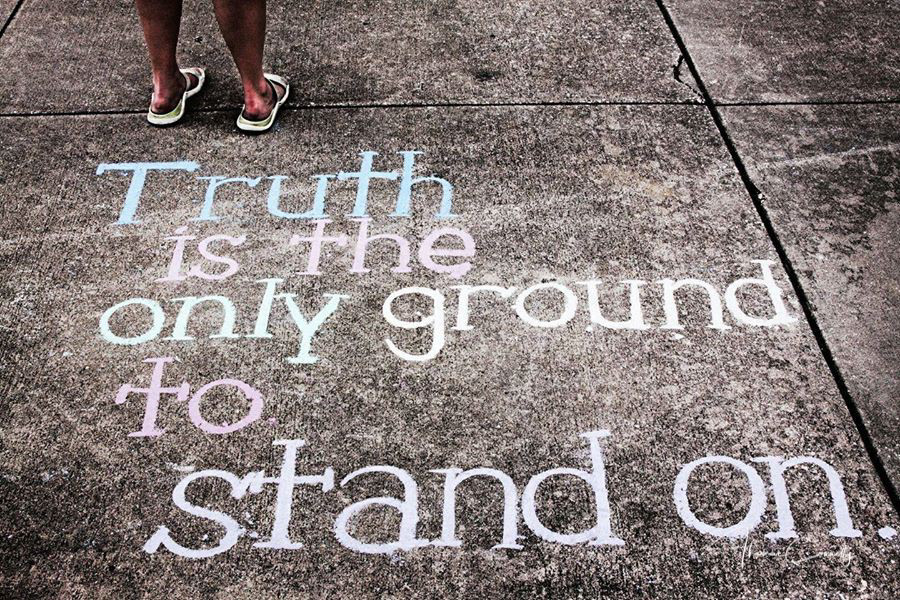 Truth
is the
only ground
to
stand on.